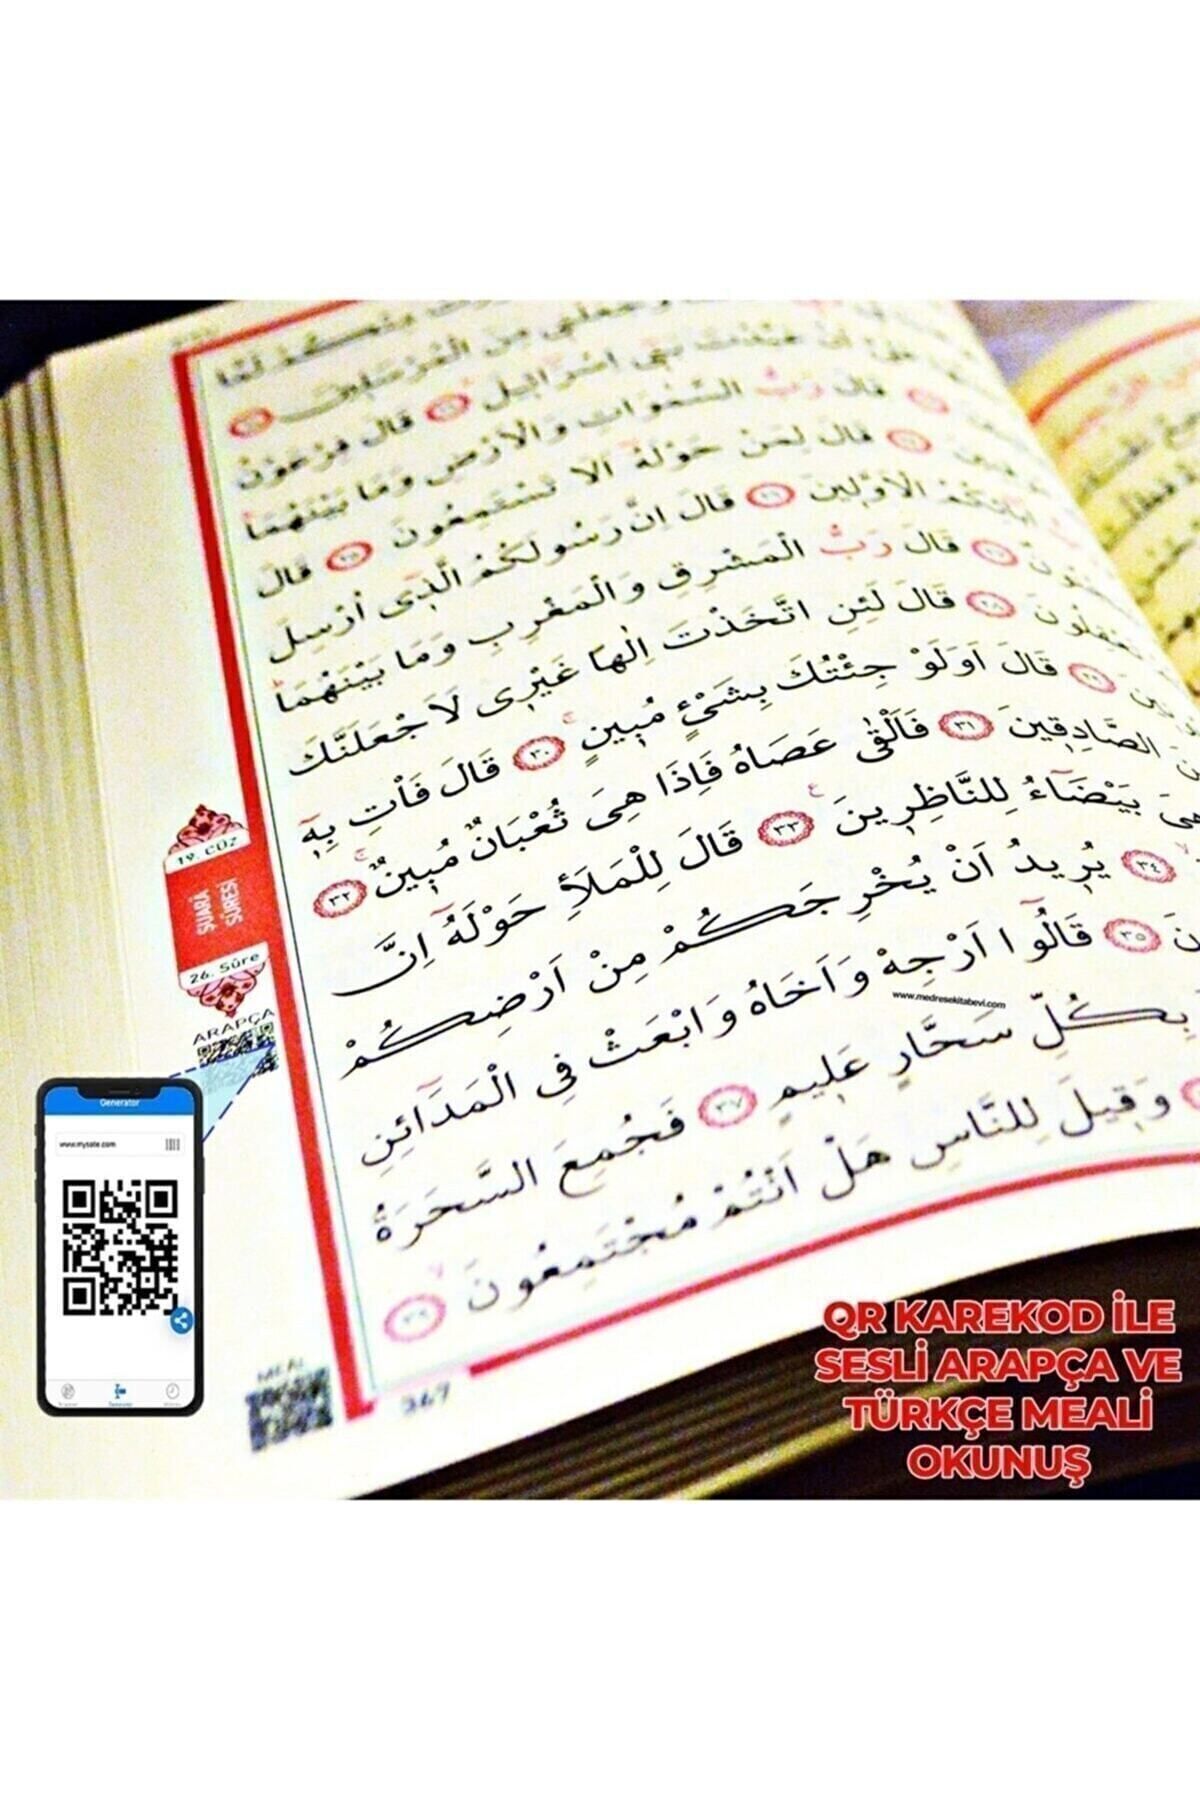 قَالَ فِرْعَوْنُ
قَالَ رَبُّ السَّمٰوَاتِ وَالْاَرْضِ وَمَا بَيْنَهُمَا
قَالَ لِمَنْ حَوْلَهُٓ اَلَا تَسْتَمِعُونَ ﴿٢٥﴾ قَالَ
اٰبَٓائِكُمُ الْاَوَّلٖينَ ﴿٢٦﴾ قَالَ اِنَّ رَسُولَكُمُ الَّذٖٓى اُرْسِلَ
﴿٢٧﴾ قَالَ رَبُّ الْمَشْرِقِ وَالْمَغْرِبِ وَمَا بَيْنَهُمَا
تَعْقِلُونَ ﴿٢٨﴾ قَالَ لَئِنِ اتَّخَذْتَ اِلٰهًا غَيْرٖى لَاَجْعَلَنَّكَ
﴿٢٩﴾ قَالَ اَوَلَوْ جِئْتُكَ بِشَىْءٍ مُبٖينٍ ﴿٣٠﴾ قَالَ فَاْتِ بِهٖٓ
الصَّادِقٖينَ ﴿٣١﴾ فَاَلْقٰى عَصَاهُ فَاِذَا هِىَ ثُعْبَانٌ مُبٖينٌ ﴿٣٢﴾
هِىَ بَيْضَٓاءُ لِلنَّاظِرٖينَ ﴿٣٣﴾ قَالَ لِلْمَلَأِ حَوْلَهُٓ اِنَّ
﴿٣٤﴾ يُرٖيدُ اَنْ يُخْرِجَكُمْ مِنْ اَرْضِكُمْ
﴿٣٥﴾ قَالُٓوا اَرْجِهْ وَاَخَاهُ وَابْعَثْ فِى الْمَدَٓائِنِ
بِكُلِّ سَحَّارٍ عَلٖيمٍ ﴿٣٧﴾ فَجُمِعَ السَّحَرَةُ
وَقٖيلَ لِلنَّاسِ هَلْ اَنْتُمْ مُجْتَمِعُونَ ﴿٣٩﴾
www.medresekitabevi.com
19. CÜZ
ŞUARÂ
SÛRESİ
26. Sûre
ARAPÇA
Generator
www.mysite.com
MEAL
367
QR KAREKOD İLE
SESLİ ARAPÇA VE
TÜRKÇE MEALİ
OKUNUŞ